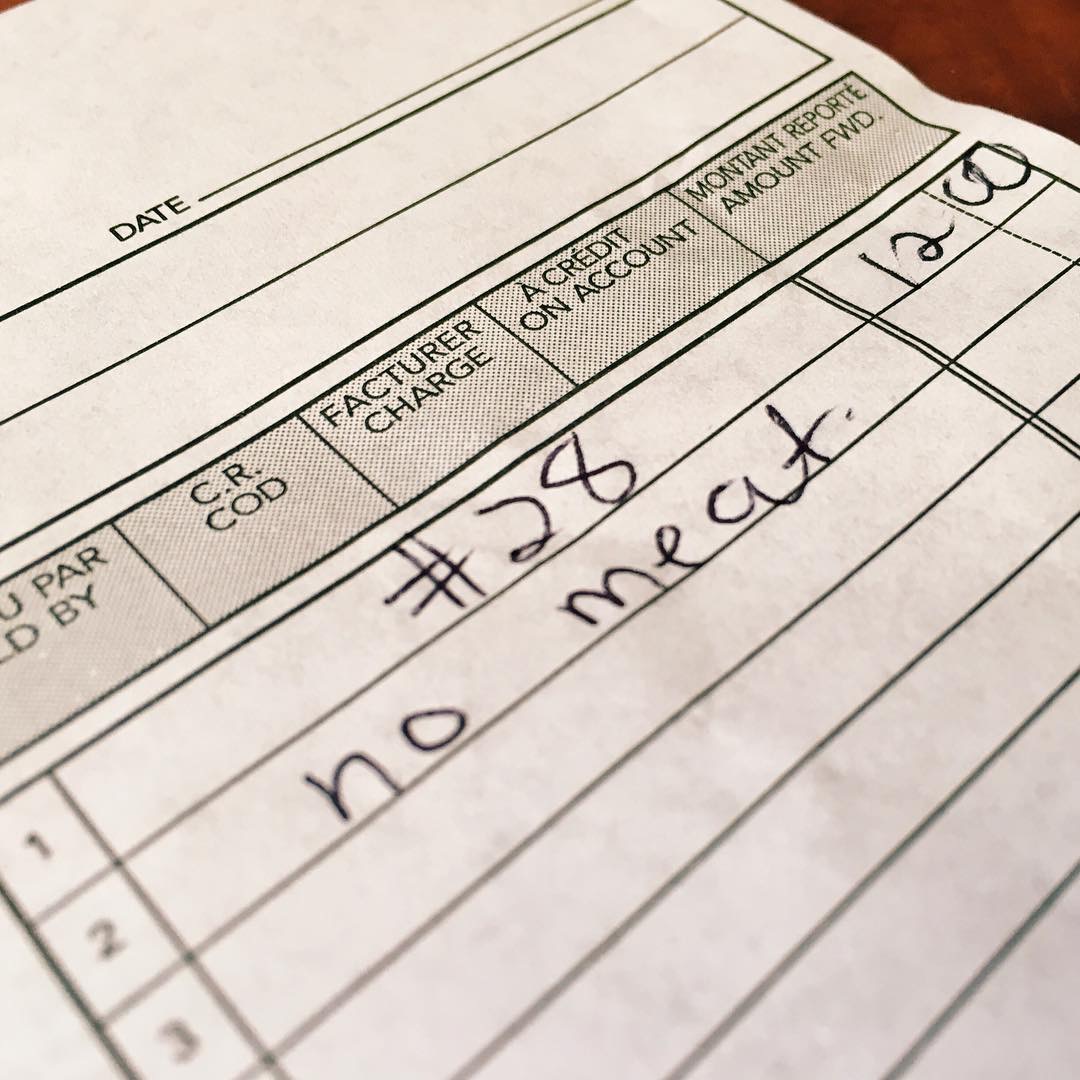 DATE
U PAR
LD BY
C.R.
COD
FACTURER
CHARGE
À CRÉDIT
ON ACCOUNT
MONTANT REPORTÉ
AMOUNT FWD.
1 #28 12 00
2 no meat.
3